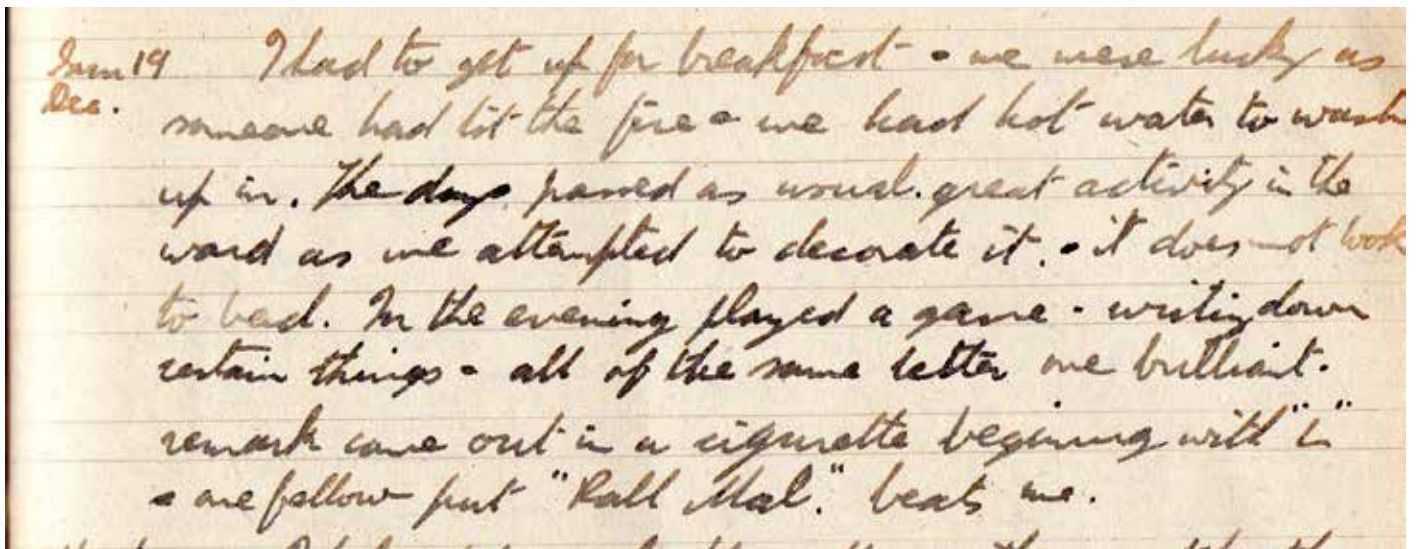 19 I had to get up for breakfast - we were lucky as
Dec. someone had lit the fire - we had hot water to wash
up in. The day passed as usual. great activity in the
ward as we attempted to decorate it. - it does not look
to bad. In the evening played a game - writing down
certain things - all of the same letter one brilliant.
remark came out in a cigarette beginning with "L"
- one fellow put "Pall Mal." beats me.